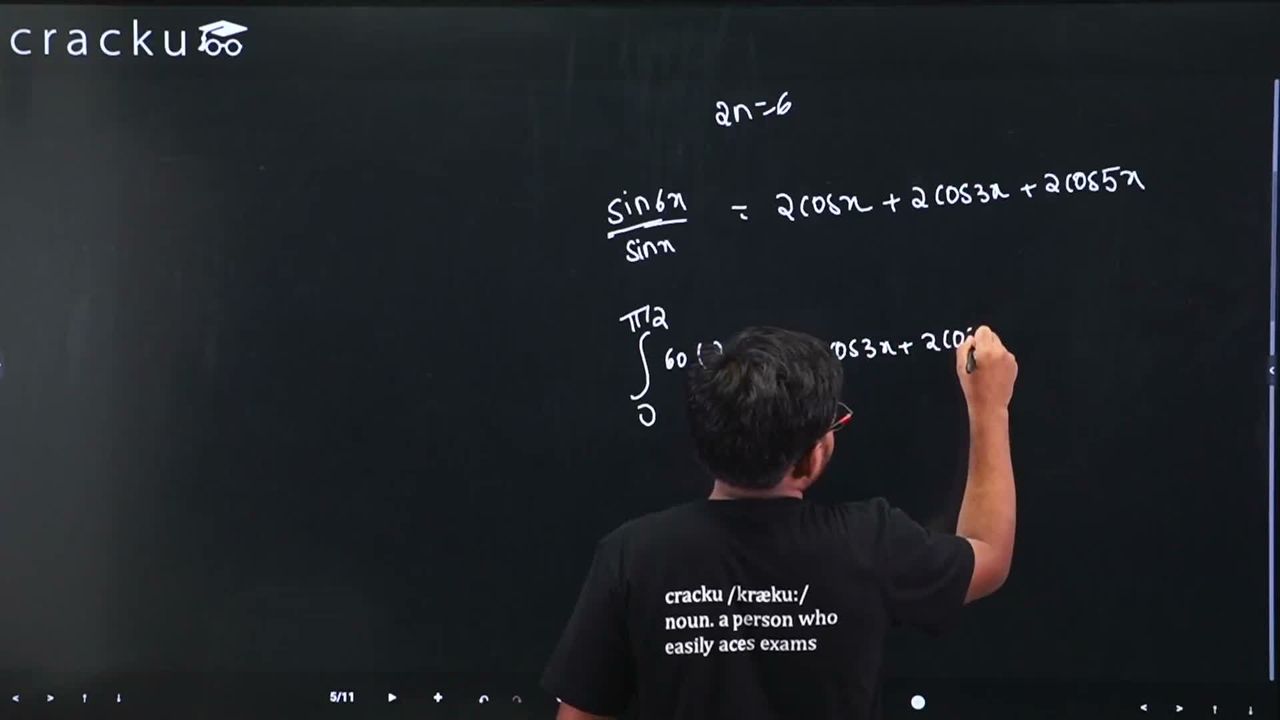 cracku
2n=6
sin6x/sinx = 2cosx + 2cos3x + 2cos5x
π/2
∫ 60 ( cos3x + 2co
0
cracku /kræku:/
noun. a person who
easily aces exams
5/11